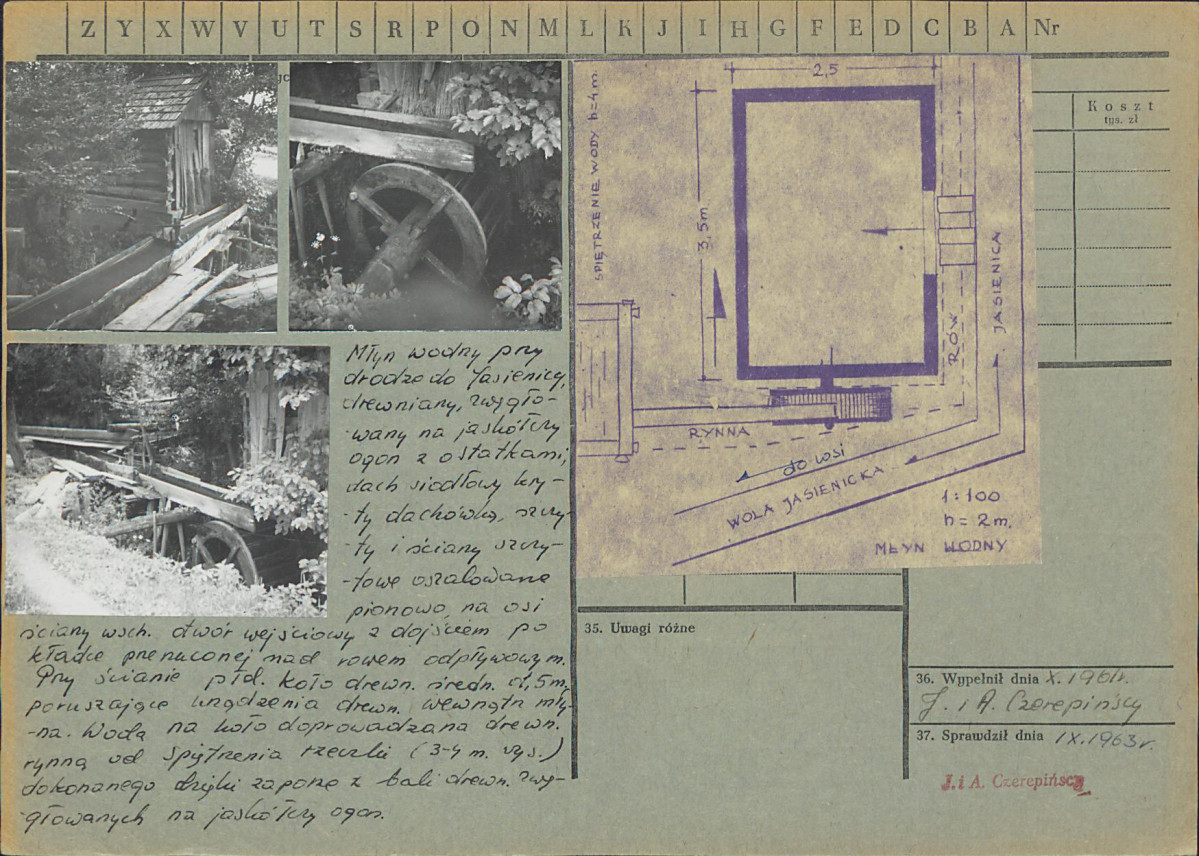 Z Y X W V U T S R P O N M L K J I H G F E D C B A Nr
Koszt
tys. zł
2,5
SPIĘTRZENIE WODY h=4m.
3,5m
RÓW
JASIENICA
RYNNA
do wsi
WOLA JASIENICKA
1:100
h = 2m.
MŁYN WODNY
Młyn wodny przy
drodze do Jasienicy,
drewniany, zwęgło-
-wany na jaskółczy
ogon z ostatkami,
dach siodłowy kry-
-ty dachówką, szczy-
-ty i ściany szczy-
-towe oszalowane
pionowo, na osi
ściany wsch. otwór wejściowy z dojściem po
kładce przerzuconej nad rowem odpływowym.
Przy ścianie płd. koło drewn. średn. 1,5m,
poruszające urządzenia drewn. wewnątrz mły-
-na. Woda na koło doprowadzana drewn.
rynną od spiętrzenia rzeczki (3-4 m. wys.)
dokonanego dzięki zaporze z bali drewn. zwę-
-głowanych na jaskółczy ogon.
35. Uwagi różne
36. Wypełnił dnia X. 1961r.
J. i A. Czerepińscy
37. Sprawdził dnia IX. 1963 r.
J. i A. Czerepińscy